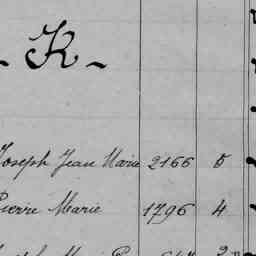 - K -
Joseph Jean Marie 2166 5
Pierre Marie 1796 4